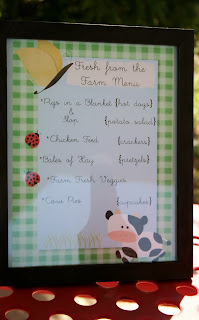 Fresh from the
Farm Menu
*Pigs in a Blanket {hot dogs}
&
Slop {potato salad}
*Chicken Feed {crackers}
*Bales of Hay {pretzels}
*Farm Fresh Veggies
*Cow Pies {cupcakes}